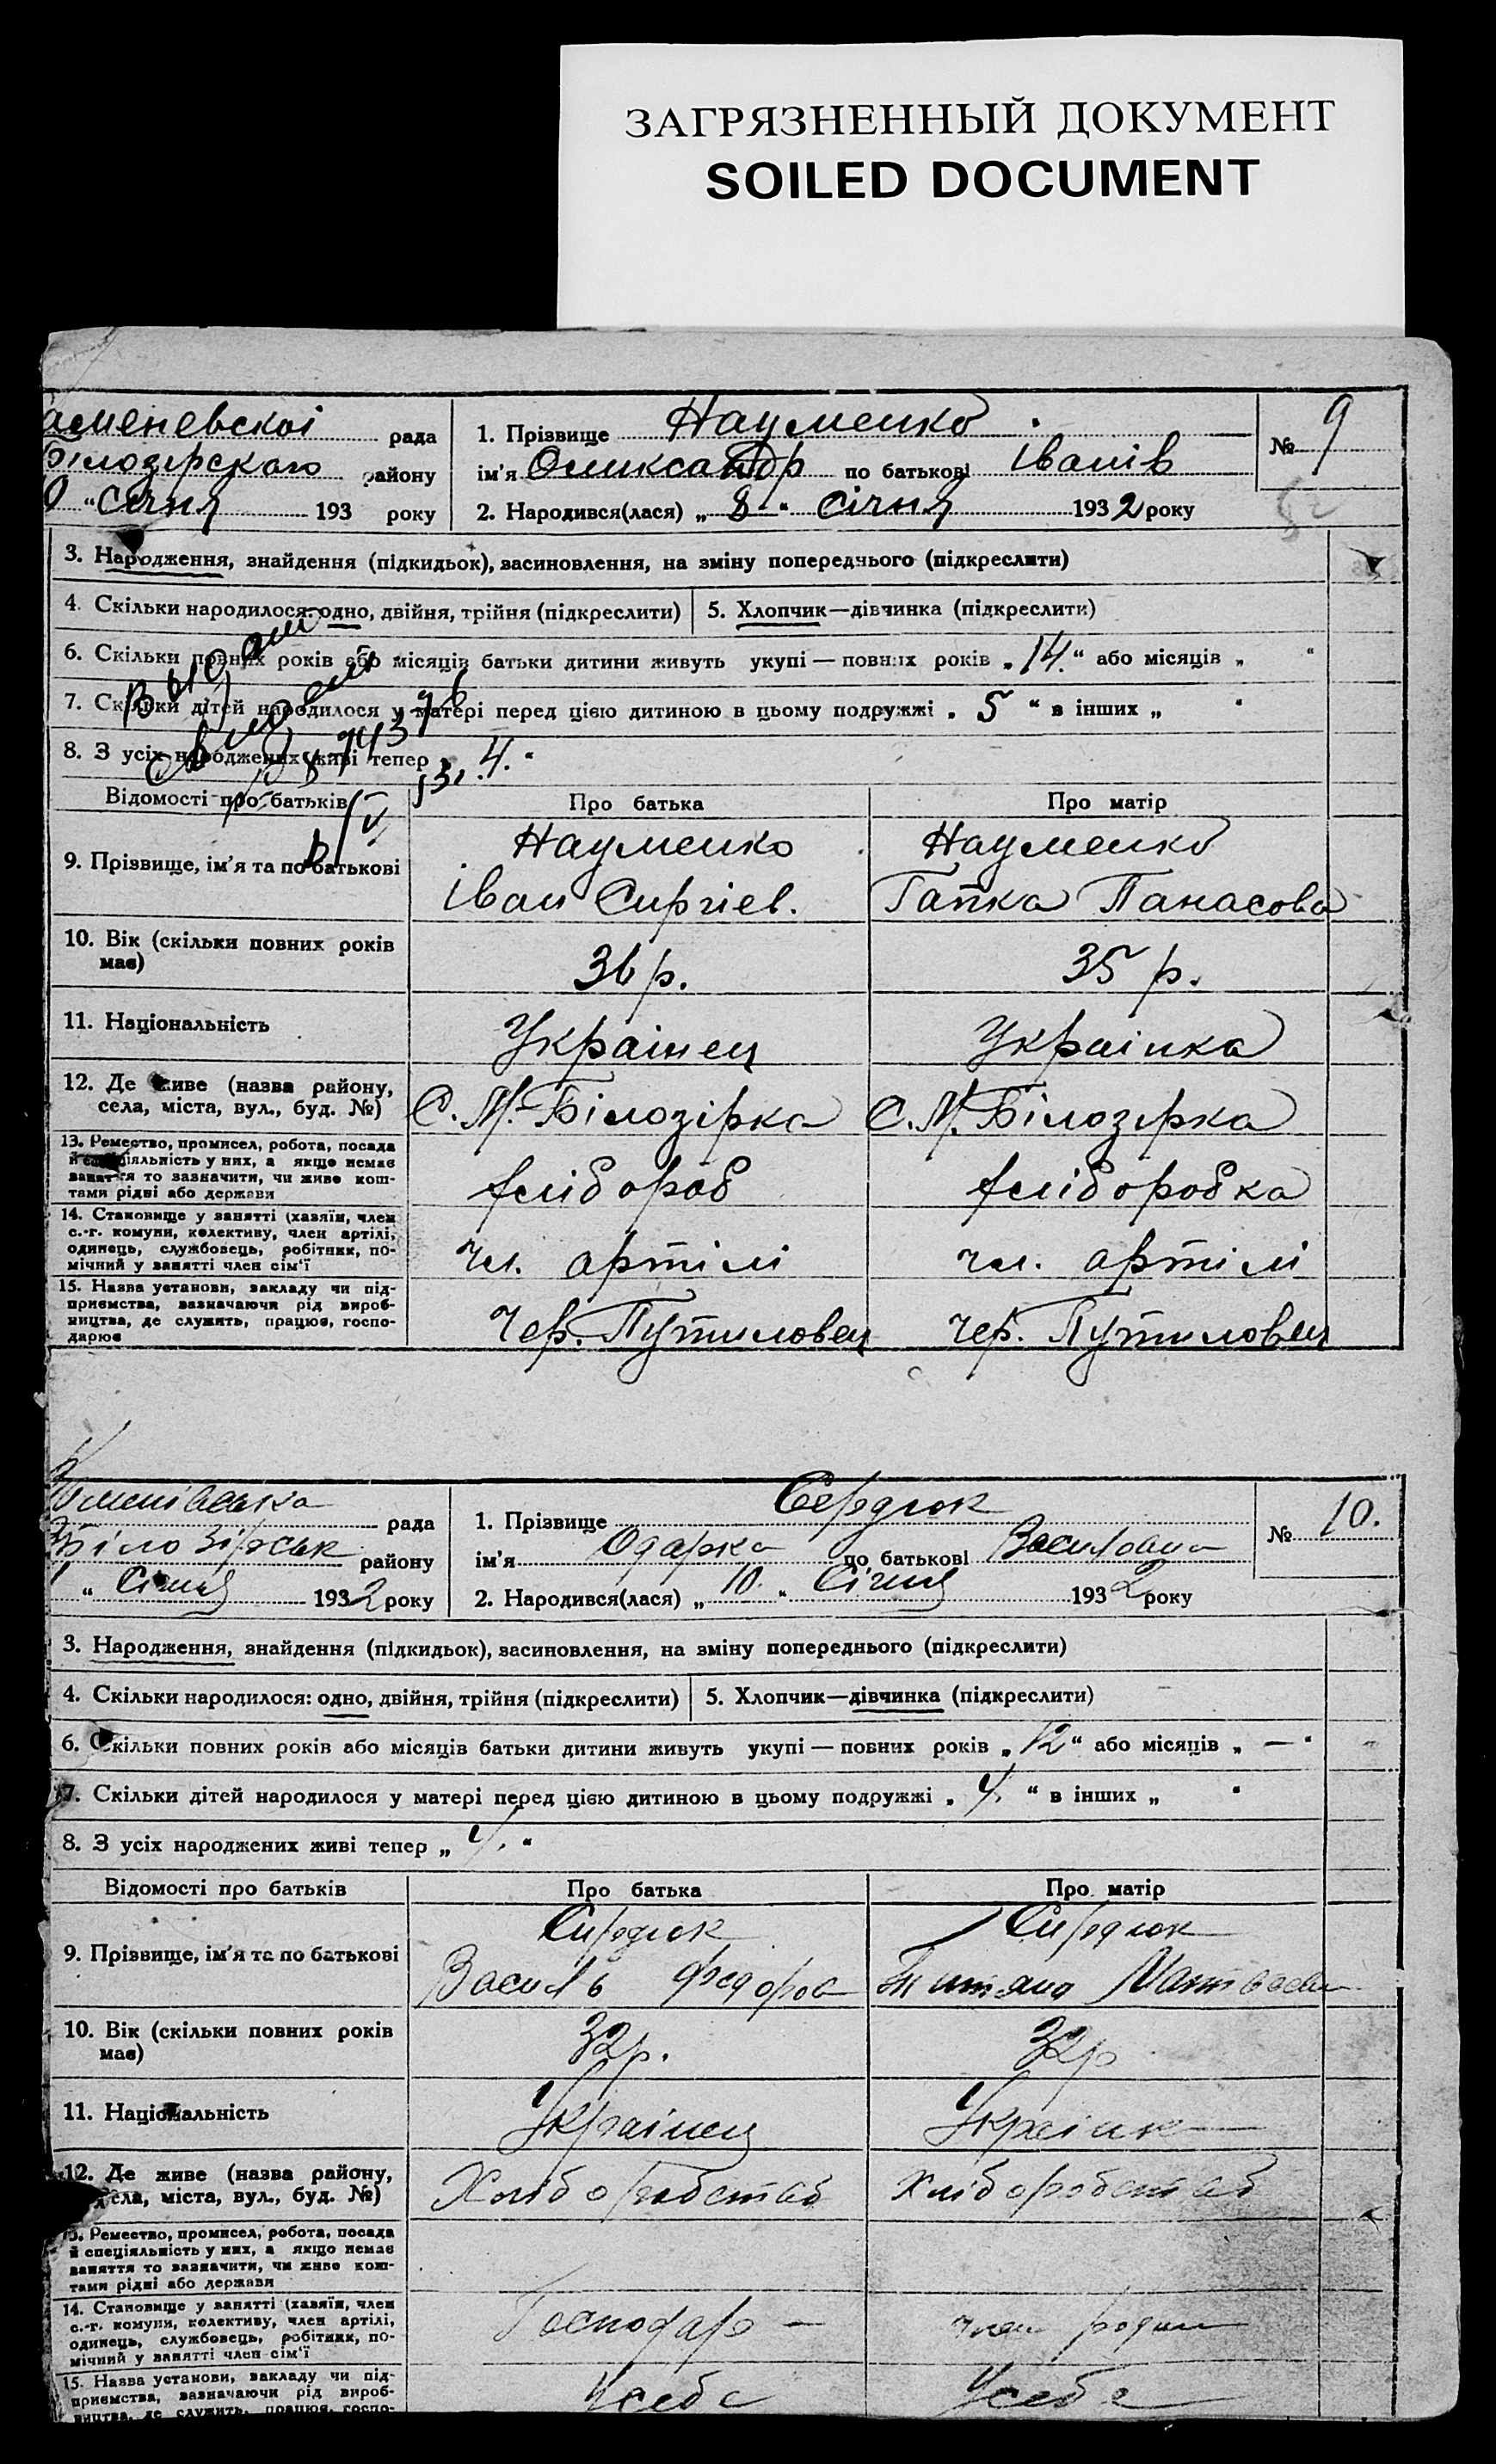 ЗАГРЯЗНЕННЫЙ ДОКУМЕНТ
SOILED DOCUMENT
аменевскоі рада
Білозірского району
"Січня 193 року
1. Прізвище Науменко
ім'я Оликсандр по батькові Іванів
2. Народився(лася) „8" Січня 1932 року
№ 9
3. Народження, знайдення (підкидьок), засиновлення, на зміну попереднього (підкреслити)
4. Скільки народилося: одно, двійня, трійня (підкреслити)
5. Хлопчик—дівчинка (підкреслити)
6. Скільки повних років або місяців батьки дитини живуть укупі — повних років „14." або місяців „ "
7. Скільки дітей народилося у матері перед цією дитиною в цьому подружжі „5" в інших „ "
8. З усіх народжених живі тепер „4."
Відомості про батьків
Про батька
Про матір
9. Прізвище, ім'я та по батькові
Науменко
Іван Сиргіев.
Науменко
Гапка Панасова
10. Вік (скільки повних років має)
36 р.
35 р.
11. Національність
Украінец
Украінка
12. Де живе (назва району, села, міста, вул., буд. №)
С. М. Білозірка
С. М. Білозірка
13. Ремество, промисел, робота, посада
й спеціяльність у них, а якщо немає
заняття то зазначити, чи живе кош-
тами рідні або держави
хлібороб
хліборобка
14. Становище у занятті (хазяїн, член
с.-г. комуни, колективу, член артілі,
одинець, службовець, робітник, по-
мічний у занятті член сім'ї
чл. артілі
чл. артілі
15. Назва установи, закладу чи під-
приємства, зазначаючи рід вироб-
ництва, де служить, працює, госпо-
дарює
Чер. Путиловец
чер. Путиловец
рада
Білозірськ району
" Січня 1932 року
1. Прізвище Сердюк
ім'я Одарка по батькові
2. Народився(лася) „10." Січня 1932 року
№ 10.
3. Народження, знайдення (підкидьок), засиновлення, на зміну попереднього (підкреслити)
4. Скільки народилося: одно, двійня, трійня (підкреслити)
5. Хлопчик—дівчинка (підкреслити)
6. Скільки повних років або місяців батьки дитини живуть укупі — повних років „12" або місяців „—"
7. Скільки дітей народилося у матері перед цією дитиною в цьому подружжі „4." в інших „ "
8. З усіх народжених живі тепер „4."
Відомості про батьків
Про батька
Про матір
9. Прізвище, ім'я та по батькові
Сирдюк
Василь Федоров
Сирдюк
10. Вік (скільки повних років має)
32 р.
32 р
11. Національність
Украінец
Украінк
12. Де живе (назва району, села, міста, вул., буд. №)
Хліборобство
Хліборобство
13. Ремество, промисел, робота, посада
й спеціяльність у них, а якщо немає
заняття то зазначити, чи живе кош-
тами рідні або держави
14. Становище у занятті (хазяїн, член
с.-г. комуни, колективу, член артілі,
одинець, службовець, робітник, по-
мічний у занятті член сім'ї
Господар —
член родини
15. Назва установи, закладу чи під-
приємства, зазначаючи рід вироб-
ництва, де служить, працює, госпо-
Усебе
Усебе